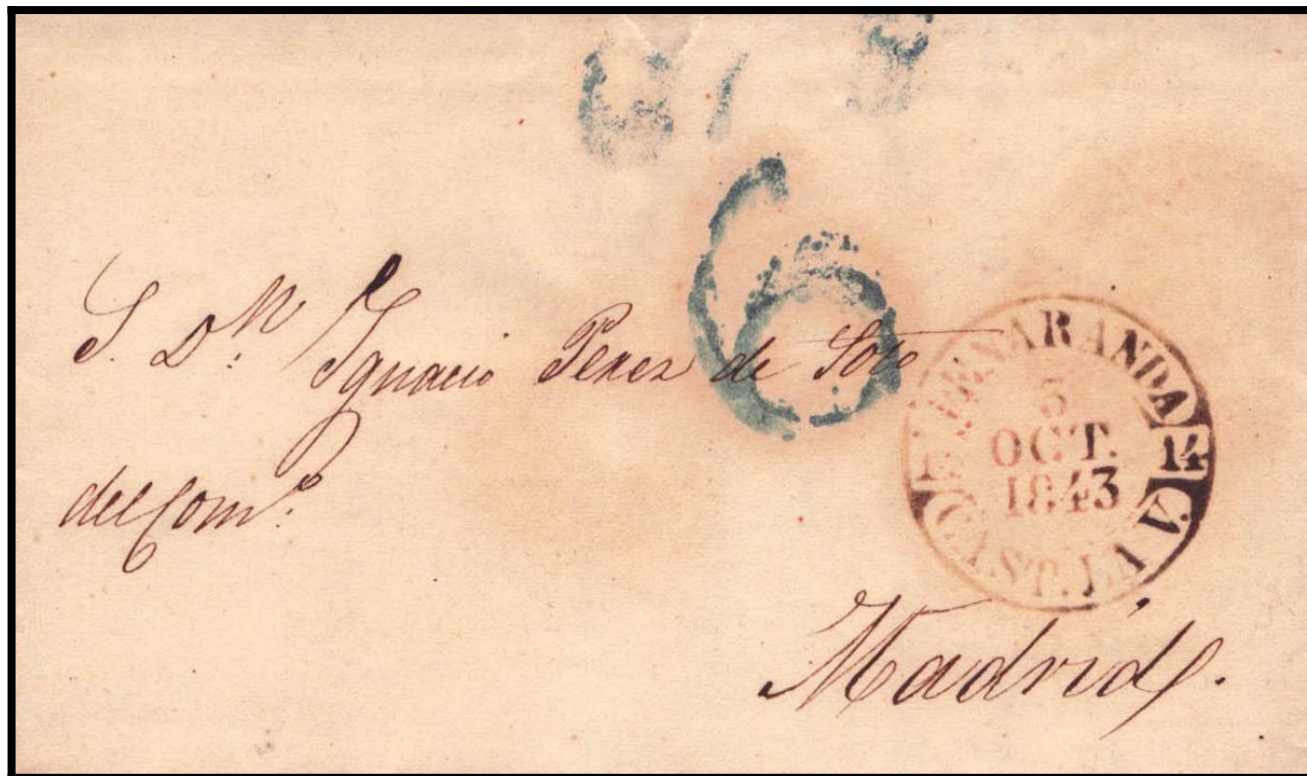 6
S. Dn. Ygnacio Perez de Soto
del Com.o
PEÑARANDA
14
3
OCT.
1843
CAST. LA V.
Madrid.